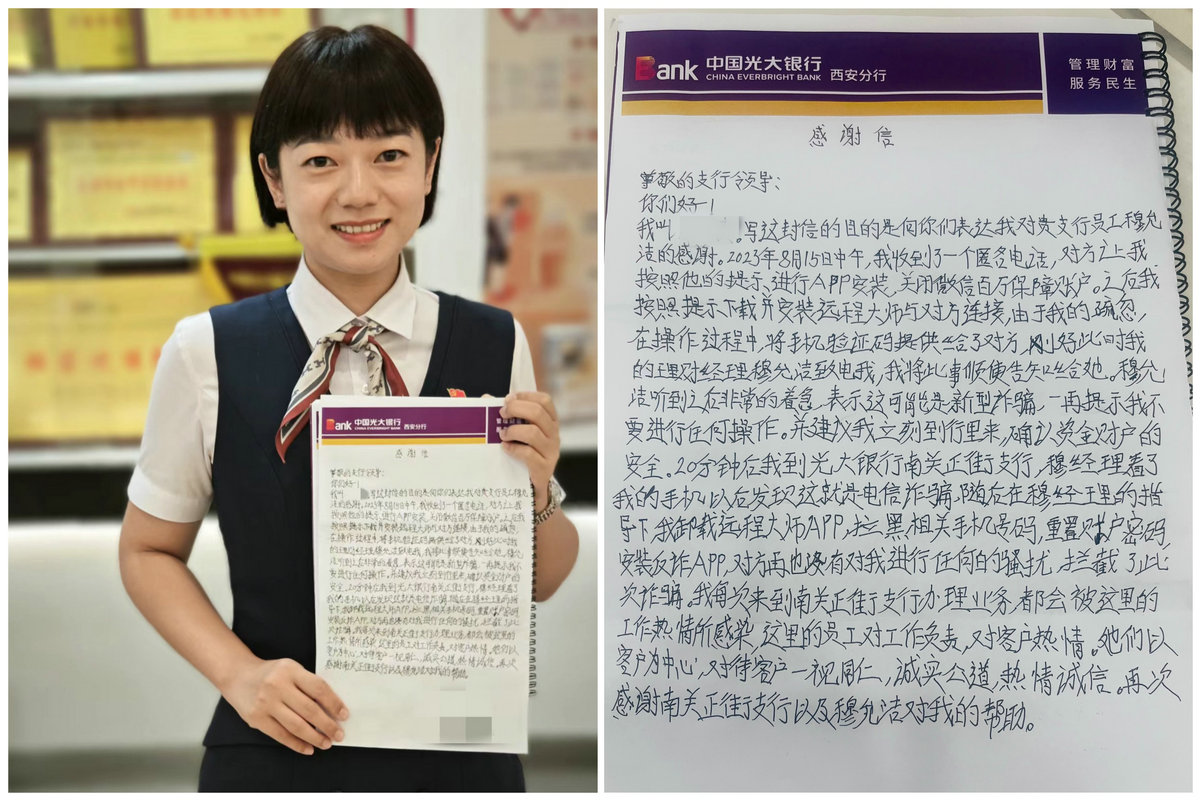 Bank 中国光大银行 西安分行
CHINA EVERBRIGHT BANK
感谢信
尊敬的支行领导：
你们好！
我叫
Bank 中国光大银行 西安分行
CHINA EVERBRIGHT BANK
管理财富
服务民生
感谢信
尊敬的支行领导：
你们好！
我叫 。写这封信的目的是向你们表达我对贵支行员工穆允
洁的感谢。2023年8月15日中午，我收到了一个匿名电话，对方让我
按照他的提示、进行APP安装，关闭微信百万保障账户。之后我
按照提示下载并安装远程大师与对方连接，由于我的疏忽，
在操作过程中，将手机验证码提供给了对方，刚好此时我
的理财经理穆允洁致电我，我将此事顺便告知给她。穆允
洁听到之后非常的着急，表示这可能是新型诈骗，一再提示我不
要进行任何操作。并建议我立刻到行里来，确认资金账户的
安全。20分钟后我到光大银行南关正街支行，穆经理看了
我的手机以后发现这就是电信诈骗，随后在穆经理的指
导下，我卸载远程大师APP，拉黑相关手机号码，重置账户密码，
安装反诈APP，对方再也没有对我进行任何的骚扰，拦截了此
次诈骗。我每次来到南关正街支行办理业务，都会被这里的
工作热情所感染，这里的员工对工作负责，对客户热情。他们以
客户为中心，对待客户一视同仁，诚实公道，热情诚信。再次
感谢南关正街支行以及穆允洁对我的帮助。